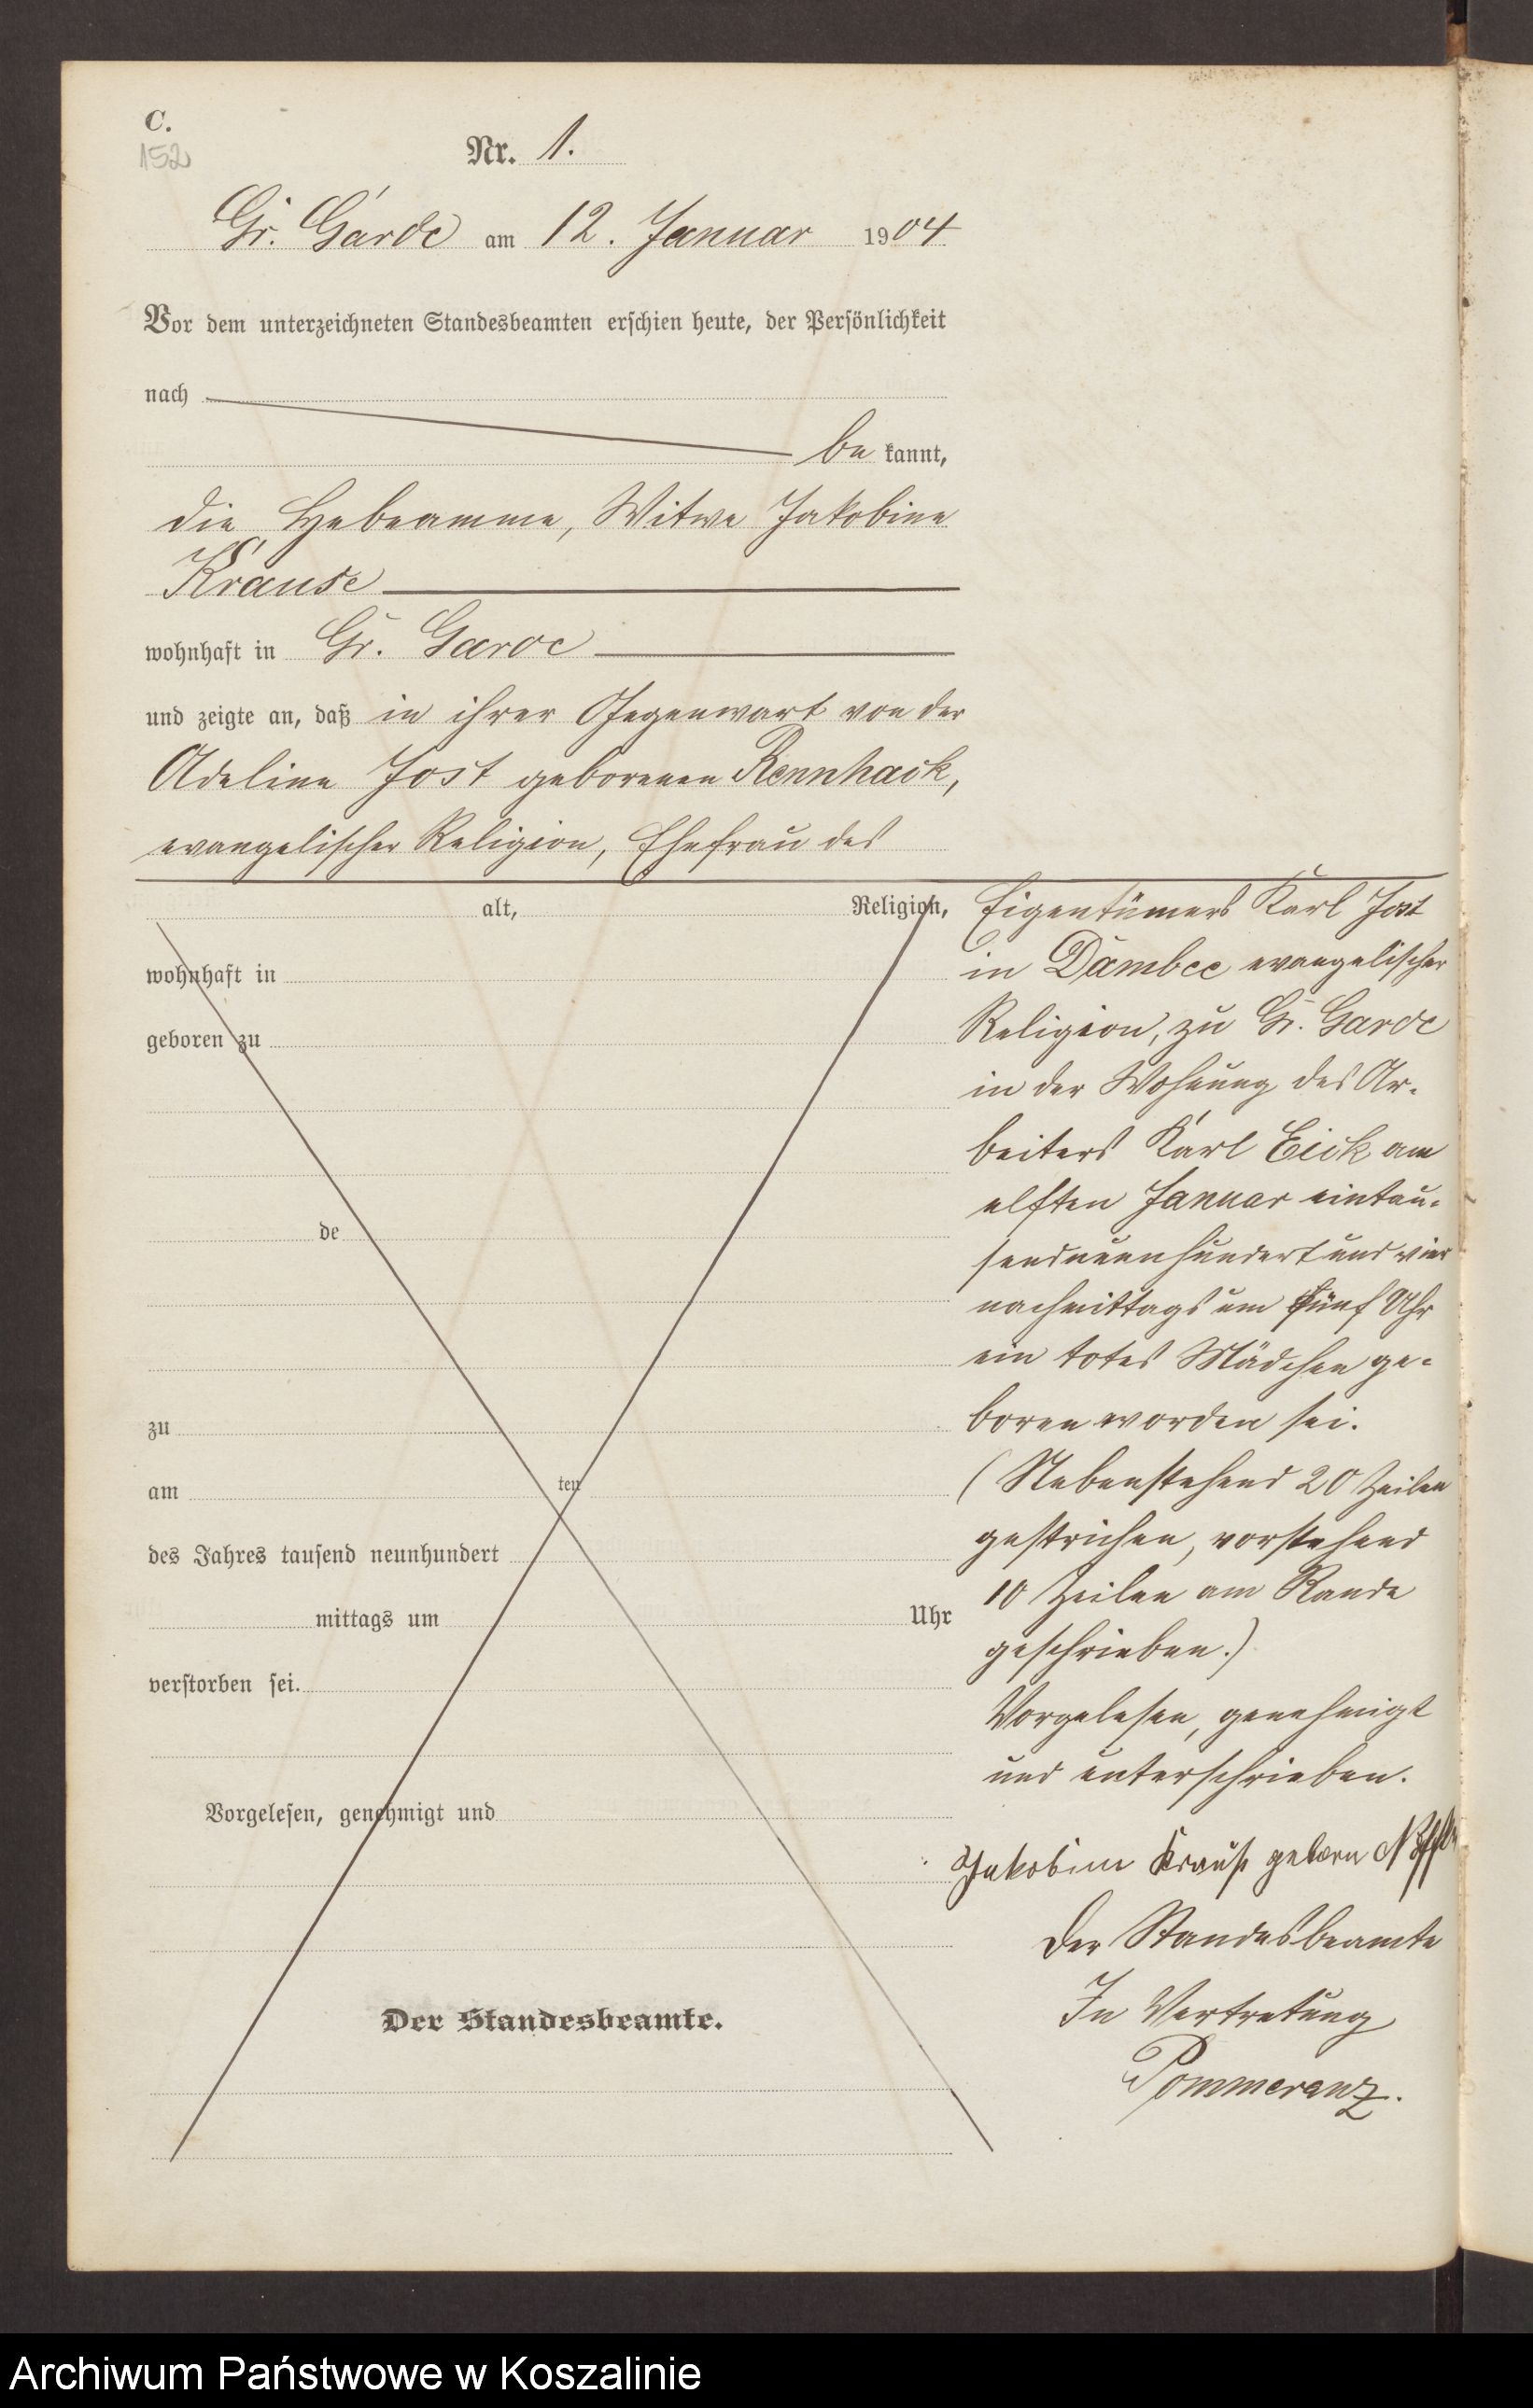 C.
152
Nr. 1.
Gr. Garde am 12. Januar 1904
Vor dem unterzeichneten Standesbeamten erschien heute, der Persönlichkeit
nach
be kannt,
die Hebeamme, Witwe Jakobine
Krause
wohnhaft in Gr. Garde
und zeigte an, daß in ihrer Gegenwart von der
Adeline Jost geborenen Rennhack,
evangelischer Religion, Ehefrau des
alt, Religion,
wohnhaft in
geboren zu
de
zu
am ten
des Jahres tausend neunhundert
mittags um Uhr
verstorben sei.
Vorgelesen, genehmigt und
Der Standesbeamte.
Eigentümers Karl Jost
in Dambee evangelischer
Religion, zu Gr. Garde
in der Wohnung des Ar-
beiters Karl Eick am
elften Januar eintau-
sendneunhundert und vier
nachmittags um fünf Uhr
ein totes Mädchen ge-
boren worden sei.
(Nebenstehend 20 Zeilen
gestrichen, vorstehend
10 Zeilen am Rande
geschrieben.)
Vorgelesen, genehmigt
und unterschrieben.
Jakobine Krause geborn
Der Standesbeamte
In Vertretung
Pommeranz.
Archiwum Państwowe w Koszalinie